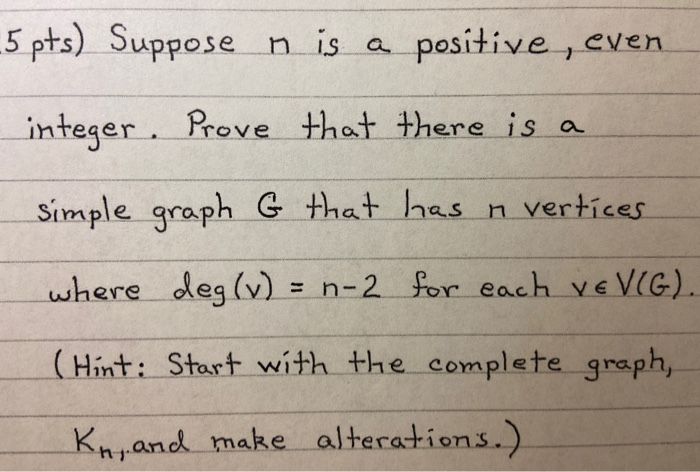 5 pts) Suppose n is a positive, even
integer. Prove that there is a
simple graph G that has n vertices
where deg(v) = n-2 for each v∈V(G).
(Hint: Start with the complete graph,
Kn, and make alterations.)